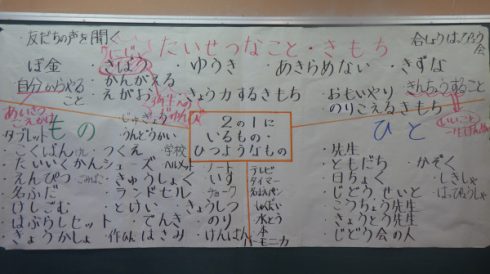 ・友だちの声を聞く
たいせつなこと・きもち
ぼ金 ・きぼう ・ゆうき ・あきらめない ・きずな
自分からやること
・かんがえる
・えがお
・きょう力するきもち ・おもいやり
・きんちょうすること
のりこえるきもち
2の1に
いるもの・
ひつようなもの
もの
・じゅぎょう
・うんどうかい
タブレット
・こくばん ・つくえ 学校
・たいいくかんシューズ ヘルメット ・ノート
・えんぴつ ごみばこ ・きゅうしょく ・いす
・名ふだ ・ランドセル ・チョーク
・けしごむ ・とけい ・きょうしつ
・はぶらしセット ・でんき ・のり
・きょうかしょ ・はさみ ・けんばんハーモニカ
テレビ
タイマー
・水とう
・本
ひと
・先生
・ともだち ・かぞく
・日ちょく ・しきしゃ
・じどう せいと
・こうちょう先生
・きょうとう先生
・じどう会の人